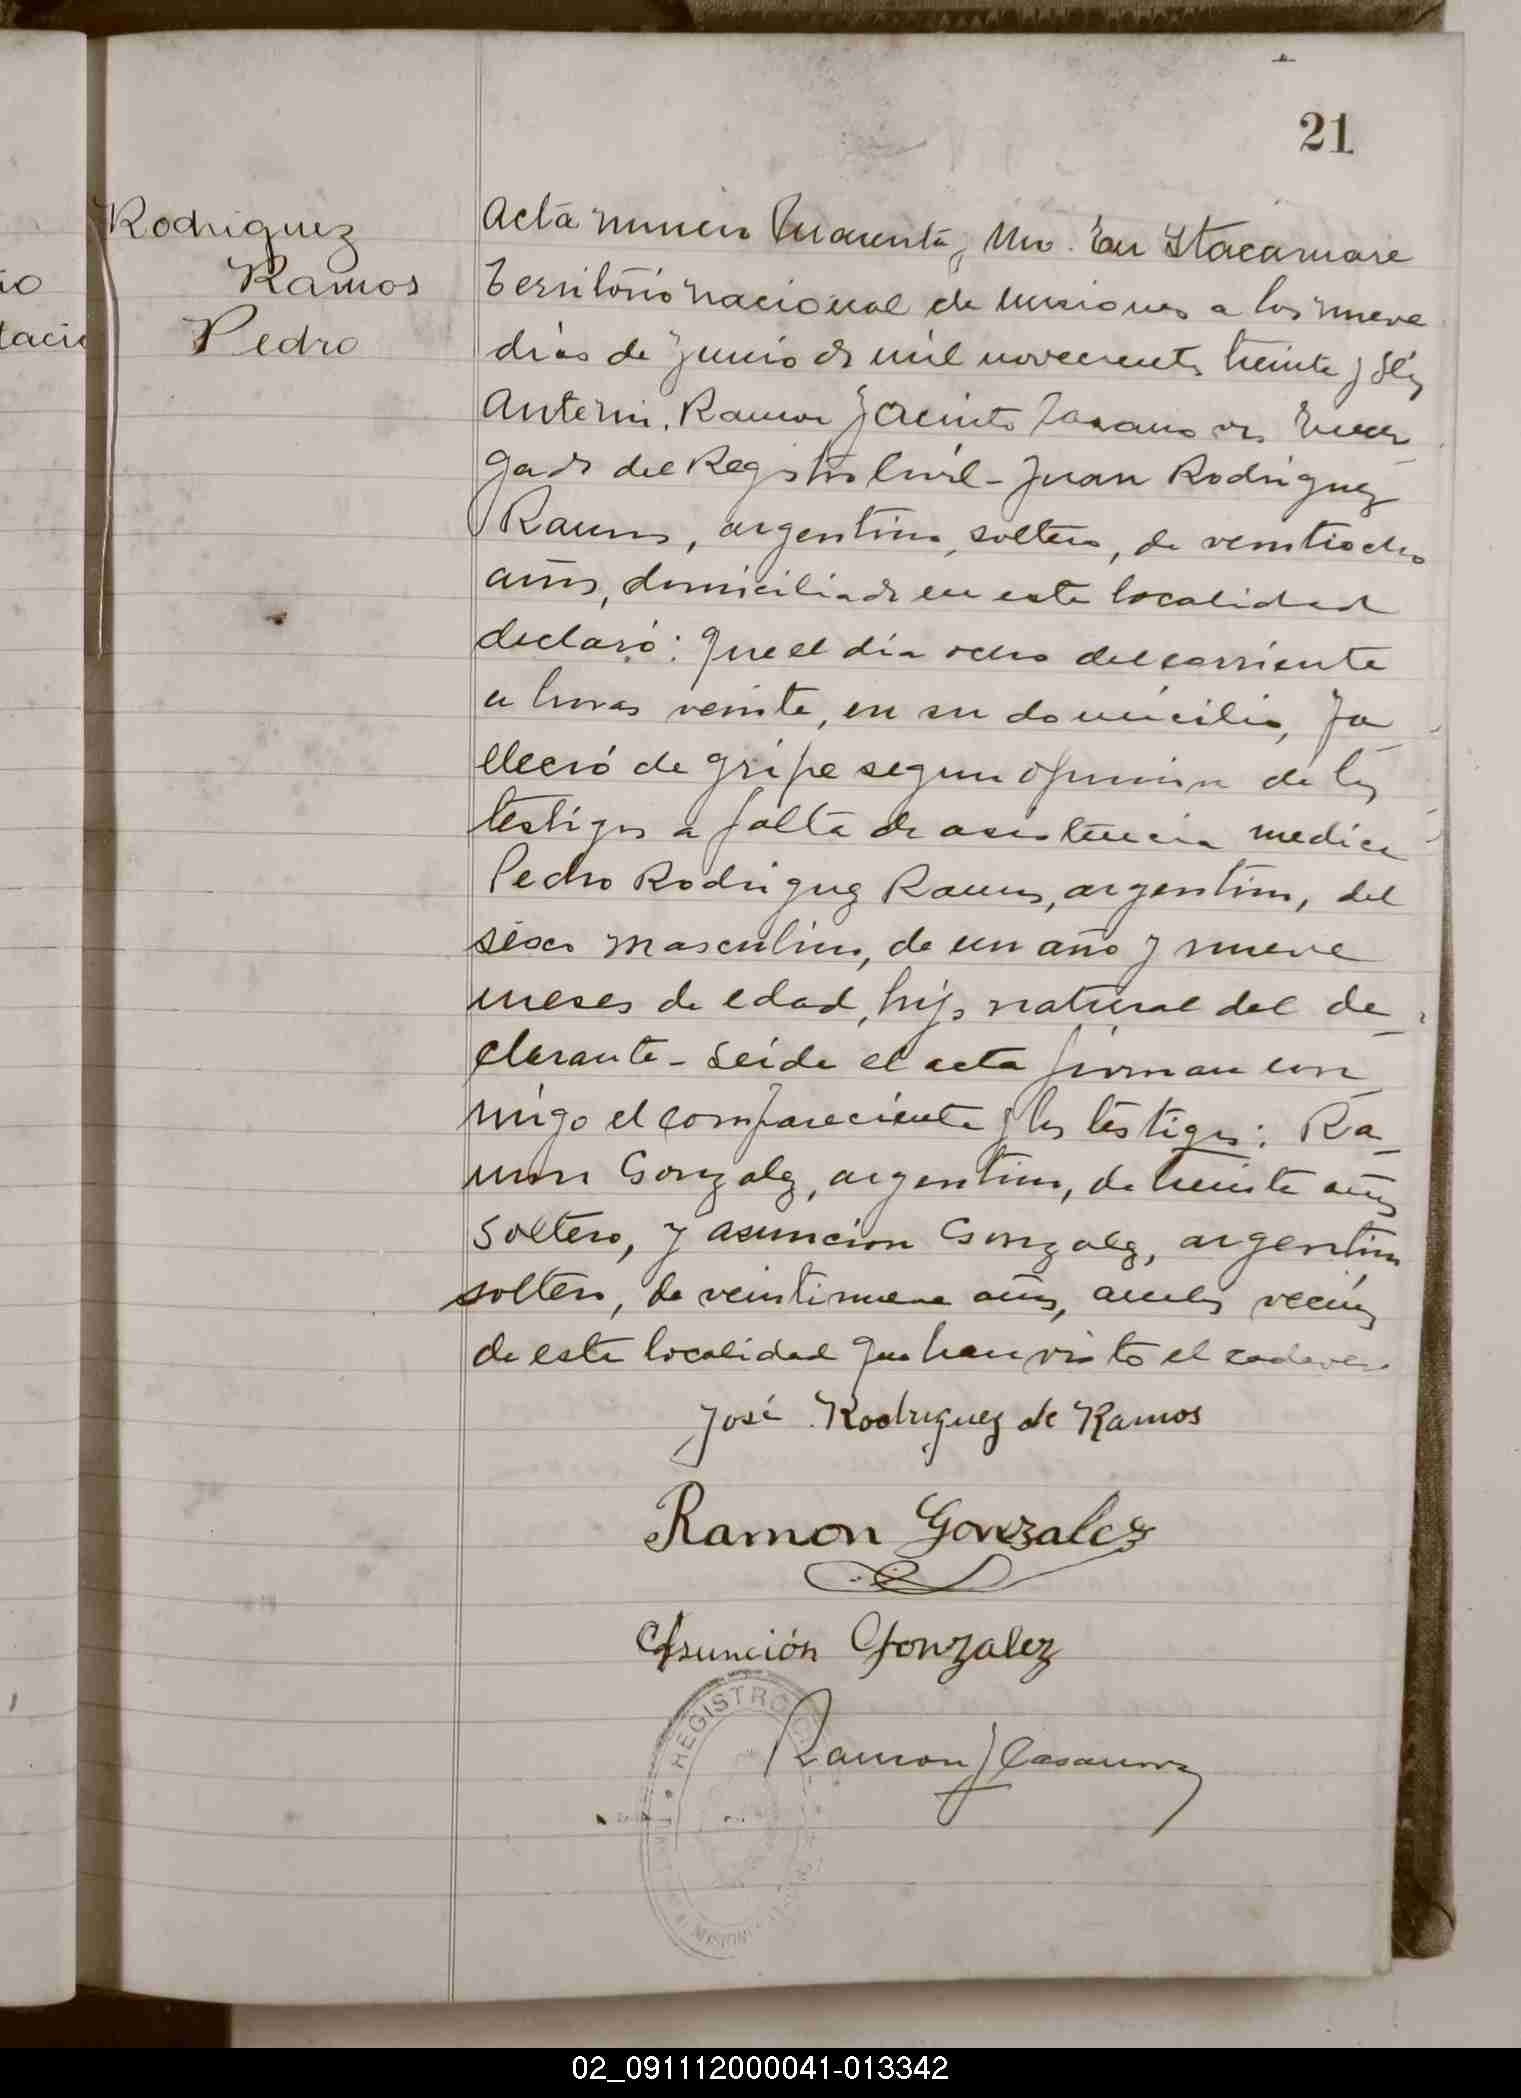 21
Rodriguez
Ramos
Pedro
Acta numero Cuarenta y Uno. En Itacaruare
Territorio nacional de misiones a los nueve
dias de Junio de mil novecientos treinta y seis
Antemi, Ramon Jacinto Casanova Encar
gado del Registro Civil - Juan Rodriguez
Ramos, argentino, soltero, de veintiocho
años, domiciliado en esta localidad
declaró: Que el día ocho del corriente
a horas veinte, en su domicilio, fa
lleció de gripe segun opinion de los
testigos a falta de asistencia medica
Pedro Rodriguez Ramos, argentino, del
sexo masculino, de un año y nueve
meses de edad, hijo natural del de
clarante - Leida el acta firman con
migo el compareciente y los testigos: Ra_
mon Gonzalez, argentino, de treinta años
soltero, y asuncion Gonzalez, argentino
soltero, de veintinueve años, ambos vecinos
de esta localidad que han visto el cadaver
José Rodriguez de Ramos
Ramon Gonzalez
Asunción Gonzalez
REGISTRO
Ramon J Casanova
02_091112000041-013342